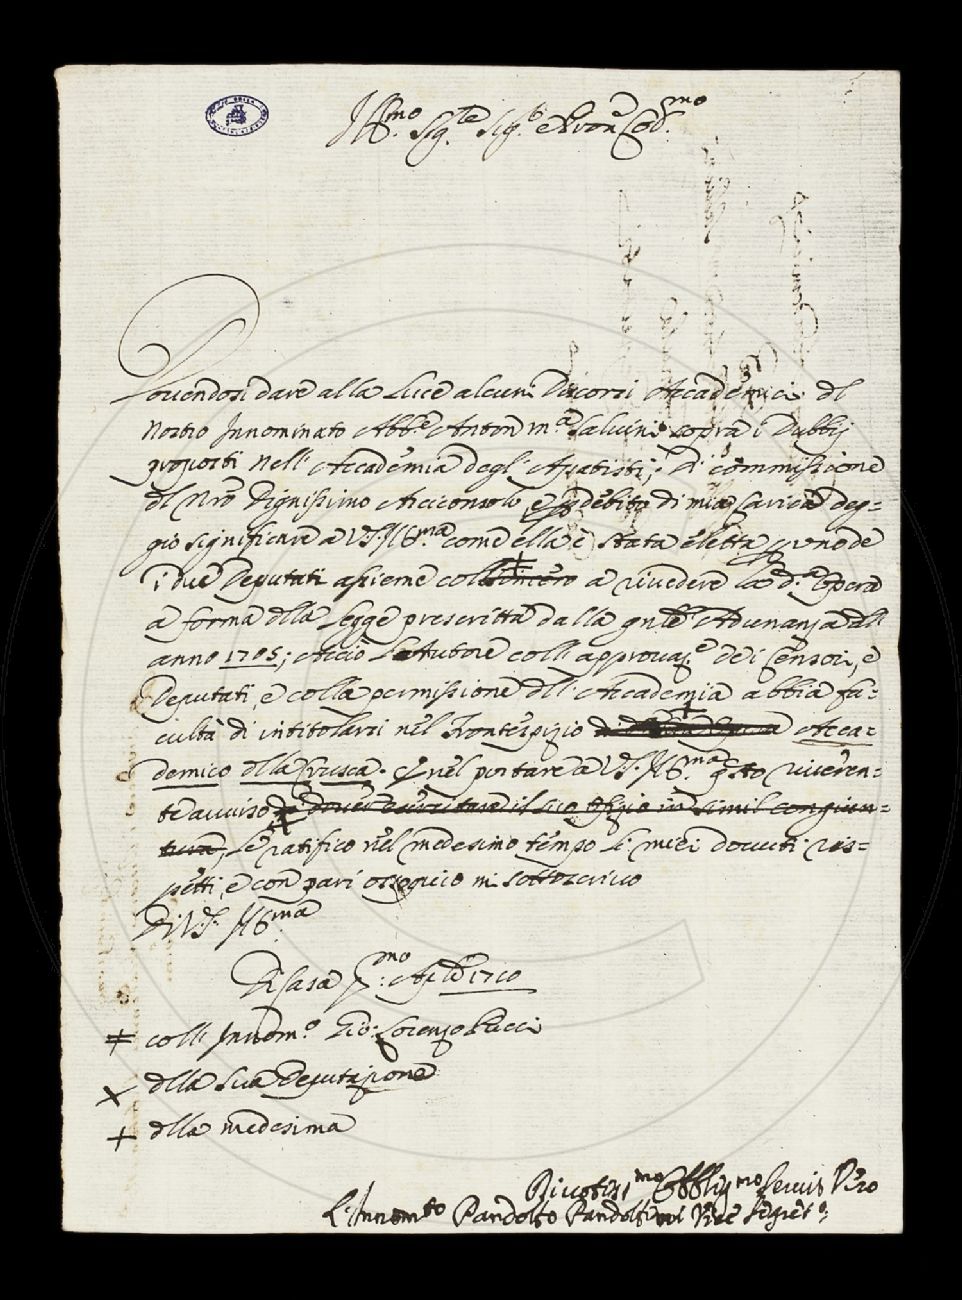 Ill.mo Sig.re Sig.e e Pron Col.mo
Dovendosi dare alla Luce alcuni Discorsi Accademici del
Nostro Innominato Abb.e Anton m.a Salvini sopra i Dubbij
proposti nell'Accademia degl'Apatisti; Di commissione
del Nro Dignissimo Arciconsolo, e p debito di mia Carica deg=
gio significare a V.S. Ill.ma come ella è stata eletta p uno de
i due Deputati assieme coll ‡ a rivedere la d.a Opera
a forma della Legge prescritta dalla gnle Adunanza dell
anno 1705; Acciò l'Autore coll approvaz.e dei Censori, e
Deputati, e colla permissione dell'Accademia abbia fa=
cultà di intitolarsi nel Frontespizio Acca=
demico della Crusca. E nel portare a V.S. Ill.ma qsto riveren=
te avviso di dover esercitare il suo Ofizio in simil congiun=
tura, le ratifico nel medesimo tempo li miei dovuti ris=
petti, e con pari ossequio mi sottoscrivo
Di V.S. Ill.ma
Di Casa p.mo Aple 1710
‡ coll Innom.o Gio: Lorenzo Pucci
X della Sua Deputazione
+ della medesima
Divotiss.mo Obblig.mo Servis Vero
L'Innom.to Pandolfo Pandolfini Vice Segret.o